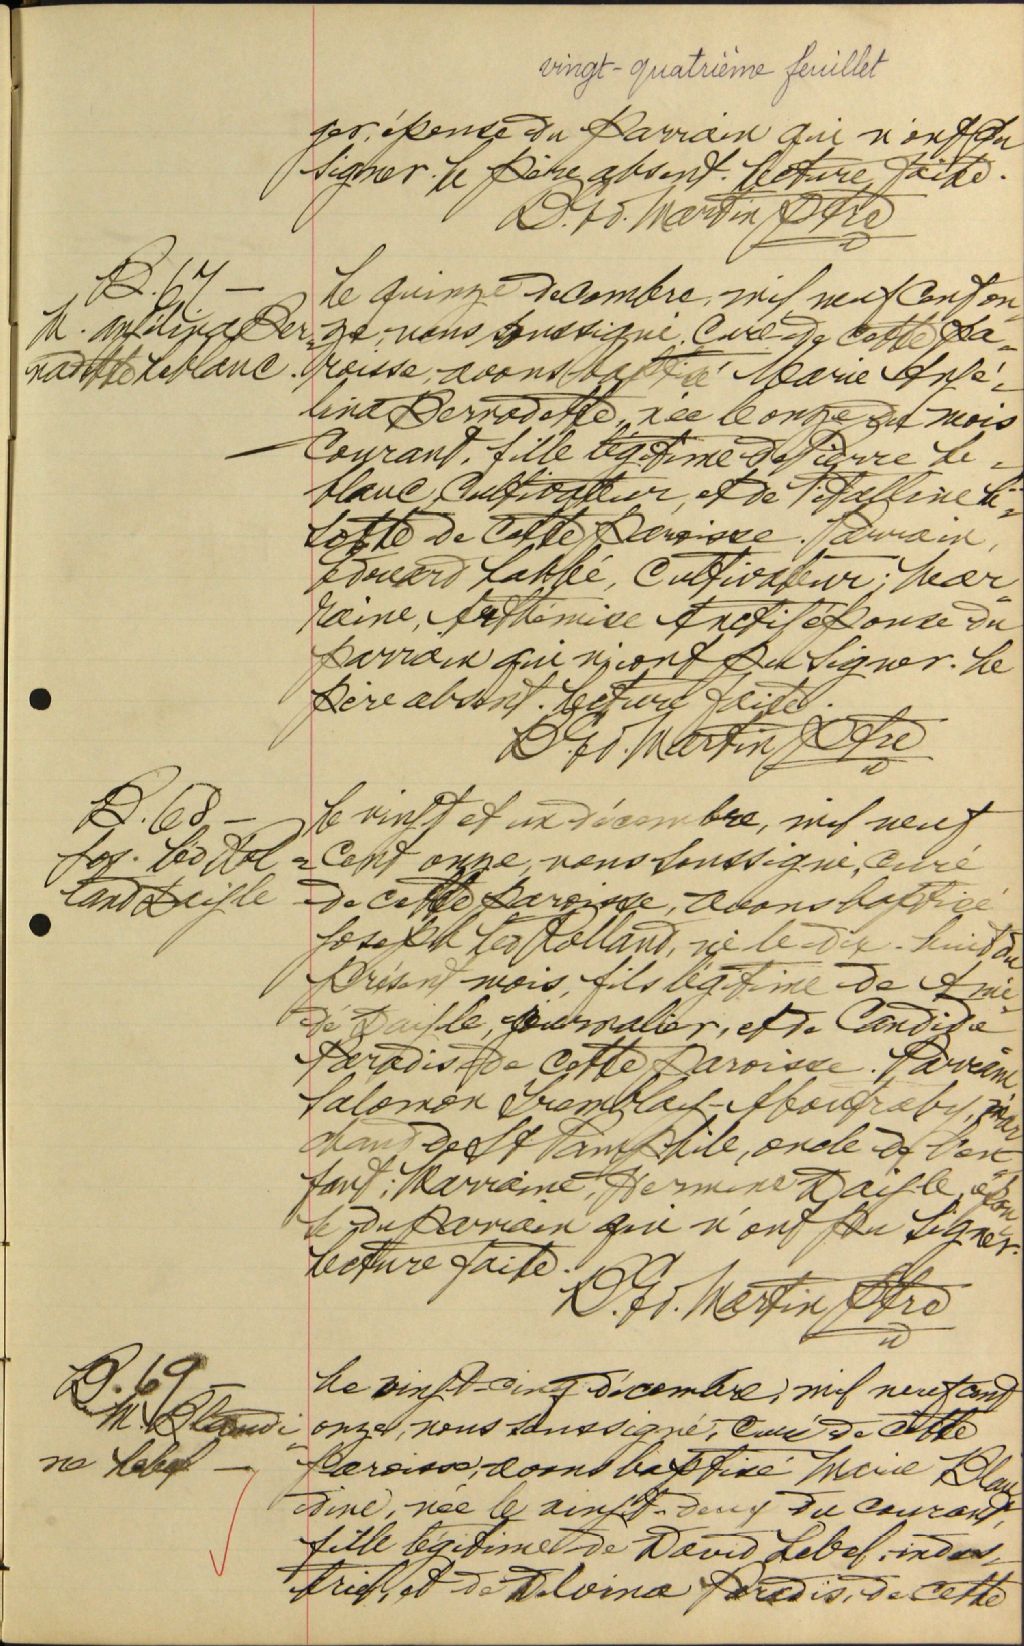 vingt-quatrième feuillet
ger, épouse du Parrain qui n'ont pu
signer. le père absent. lecture faite.
D. Ed. Martin Ptre
B. 67 —
M. Anfélina Ber-
nadette Leblanc.
Le quinze decembre, mil neuf cent on-
ze, nous soussigné, Curé de cette Pa-
roisse, avons baptisé Marie Anfé-
lina Bernadette, née le onze du mois
Courant, fille légitime de Pierre Le-
blanc, Cultivateur, et de Vitalline Li-
zotte de cette Paroisse. Parrain,
Edouard Labbé, Cultivateur; Mar-
raine, Arthémise Anctil épouse du
parrain qui n'ont pu signer. Le
père absent. Lecture faite.
D. Ed. Martin Ptre
B. 68 —
Jos. Léo Rol-
land Daigle
Le vingt et un décembre, mil neuf
Cent onze, nous soussigné, curé
de cette paroisse, avons baptisé
Joseph Léo Rolland, né le dix-huit du
présent mois, fils légitime de Amé-
dé Daigle, journalier, et de Candide
Paradis de cette paroisse. Parrain
Salomon Tremblay, mar
chand de St Pamphile, oncle de l'en-
fant; Marraine, Hermine Daigle, épou
se du parrain qui n'ont pu signer.
Lecture faite.
D. Ed. Martin Ptre
B. 69 —
M. Blandi-
ne Lebel —
Le vingt-cinq décembre, mil neuf cent
onze, nous soussigné, Curé de cette
Paroisse, avons baptisé Marie Blan
dine, née le vingt-deux du courant,
fille légitime de David Lebel, indus-
triel, et de Delvina Paradis, de cette